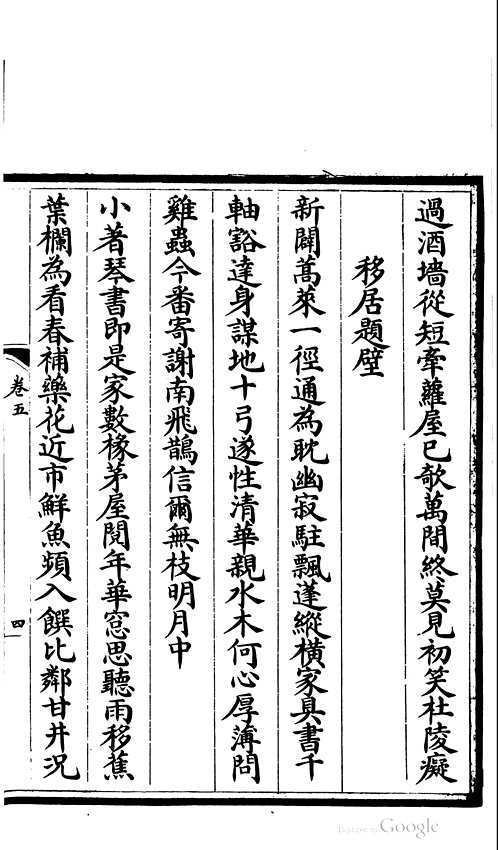 過酒墻從短牽蘿屋已欹萬間終莫見初笑杜陵癡
移居題壁
新闢蒿萊一徑通為耽幽寂駐飄蓬縱橫家具書千
軸豁達身謀地十弓遂性清華親水木何心厚薄問
雞蟲今番寄謝南飛鵲信爾無枝明月中
小著琴書即是家數椽茅屋閱年華窓思聽雨移蕉
葉欄為看春補藥花近市鮮魚頻入饌比鄰甘井況
卷五
四
Digitized by Google